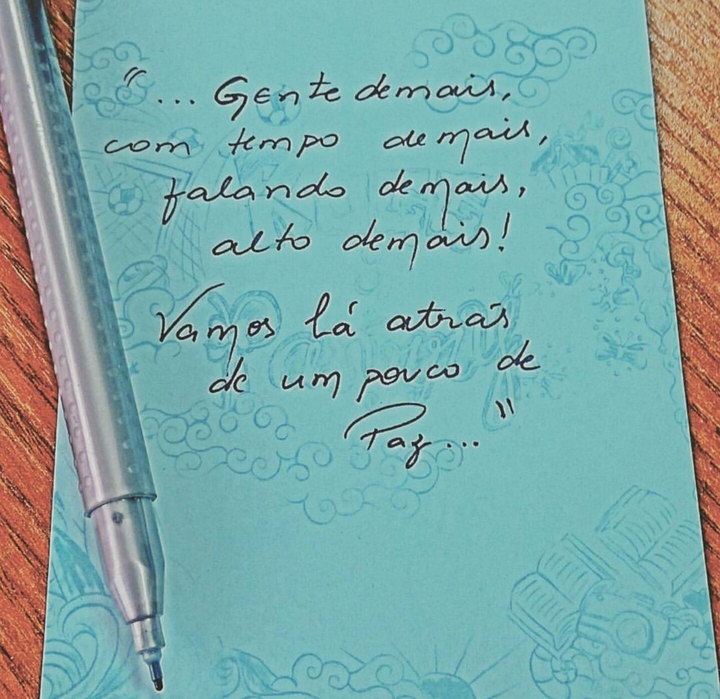 "... Gente demais,
com tempo demais,
falando demais,
alto demais!
Vamos lá atrás
de um pouco de
Paz... "